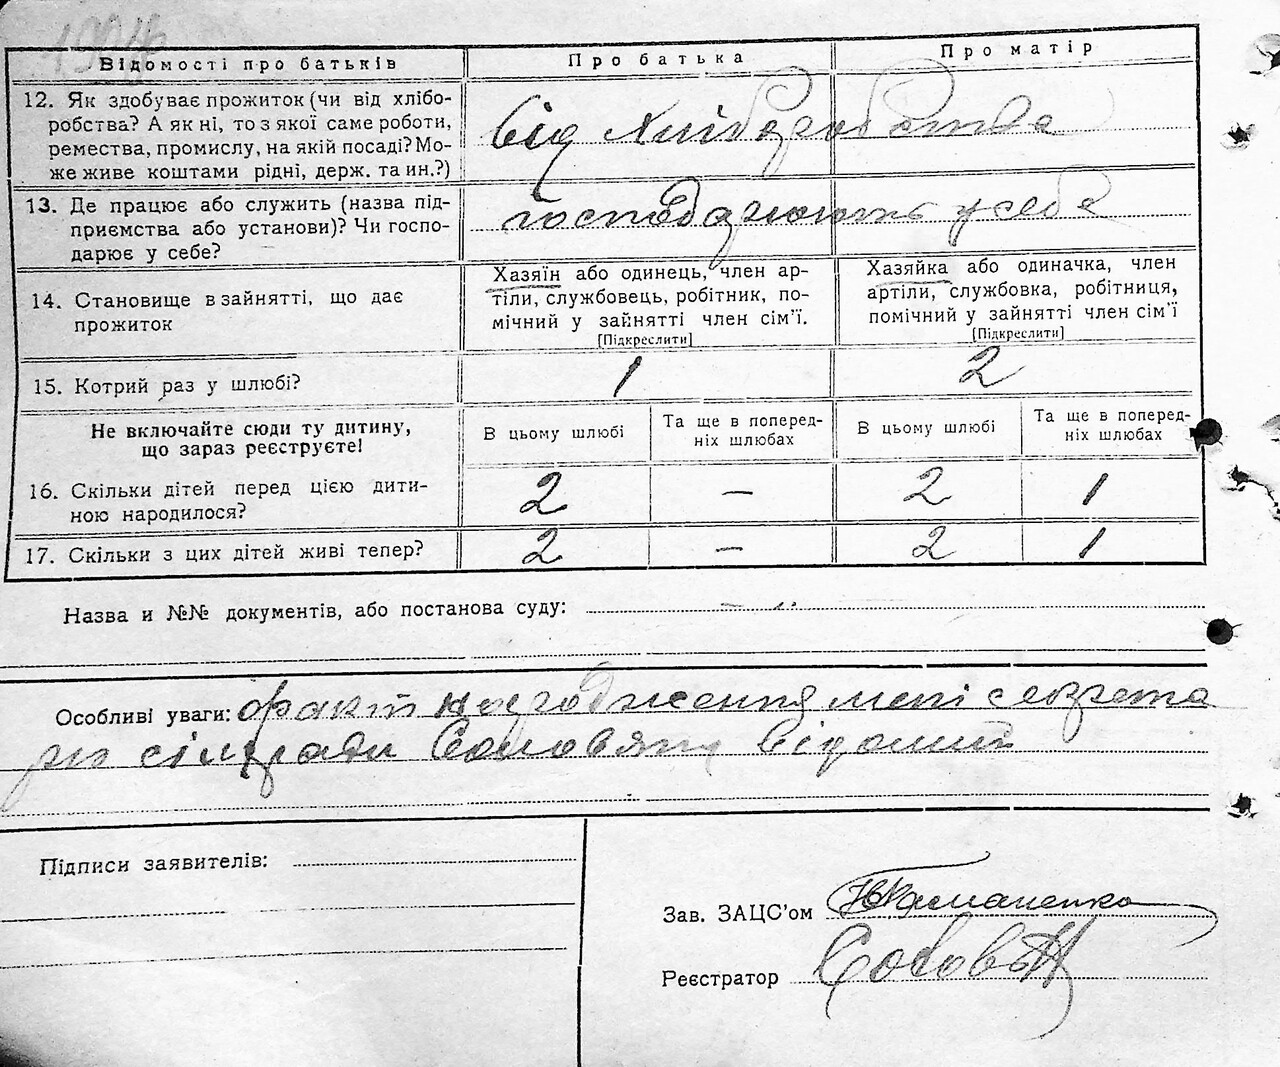 Відомості про батьків
Про батька
Про матір
12. Як здобуває прожиток (чи від хлібо-
робства? А як ні, то з якої саме роботи,
ремества, промислу, на якій посаді? Мо-
же живе коштами рідні, держ. та ин.?)
від хліборобства
13. Де працює або служить (назва під-
приємства або установи)? Чи госпо-
дарює у себе?
господарюють у себе
14. Становище в зайнятті, що дає
прожиток
Хазяїн або одинець, член ар-
тіли, службовець, робітник, по-
мічний у зайнятті член сім'ї.
[Підкреслити]
Хазяйка або одиначка, член
артіли, службовка, робітниця,
помічний у зайнятті член сім'ї
[Підкреслити]
15. Котрий раз у шлюбі?
1
2
Не включайте сюди ту дитину,
що зараз реєструєте!
В цьому шлюбі
Та ще в поперед-
ніх шлюбах
В цьому шлюбі
Та ще в поперед-
ніх шлюбах
16. Скільки дітей перед цією дити-
ною народилося?
2
—
2
1
17. Скільки з цих дітей живі тепер?
2
—
2
1
Назва и №№ документів, або постанова суду:
Особливі уваги: факт народження мені секрета
рю сільради Соловяну відомий
Підписи заявителів:
Зав. ЗАЦС'ом
Реєстратор